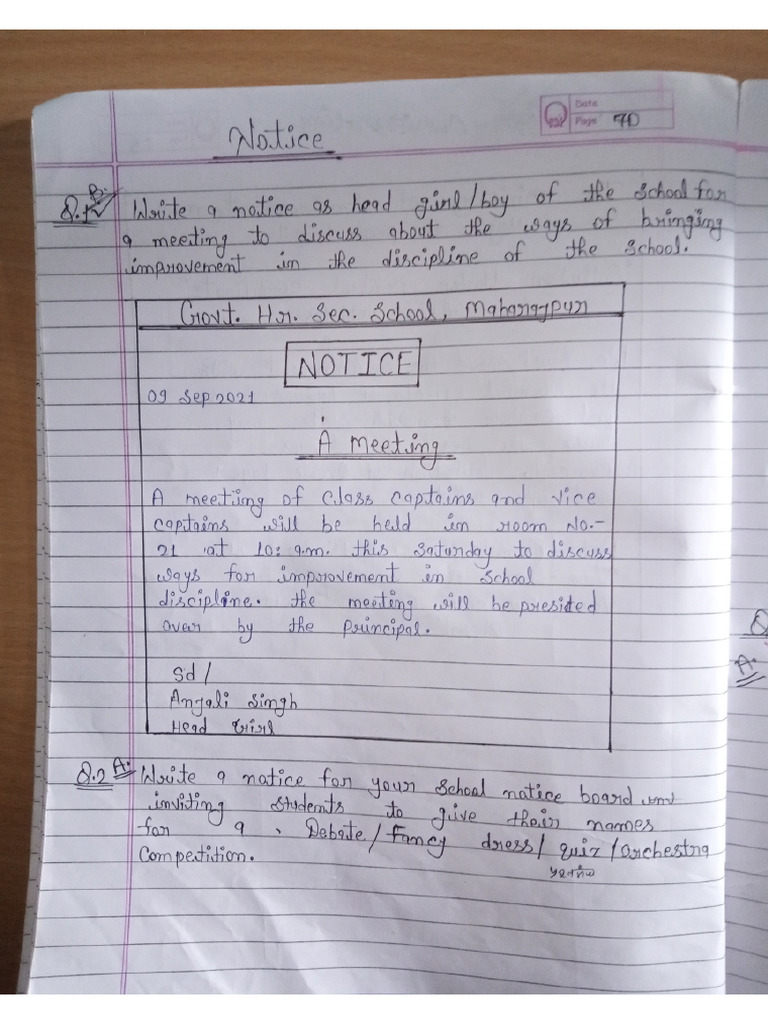 Date
Page 70
Notice
Q.1 B. Write a notice as head girl/boy of the school for
a meeting to discuss about the ways of bringing
improvement in the discipline of the school.
Govt. Hr. Sec. School, Maharajpur
NOTICE
09 Sep 2021
A meeting
A meeting of class captains and vice
captains will be held in room No.-
21 at 10: a.m. this saturday to discuss
ways for improvement in school
discipline. the meeting will be presided
over by the principal.
Sd/
Anjali Singh
Head Girl
Q.2 A. Write a notice for your school notice board
inviting students to give their names
for a, Debate/Fancy dress/quiz/orchestra
Compeitition.
Q
A.